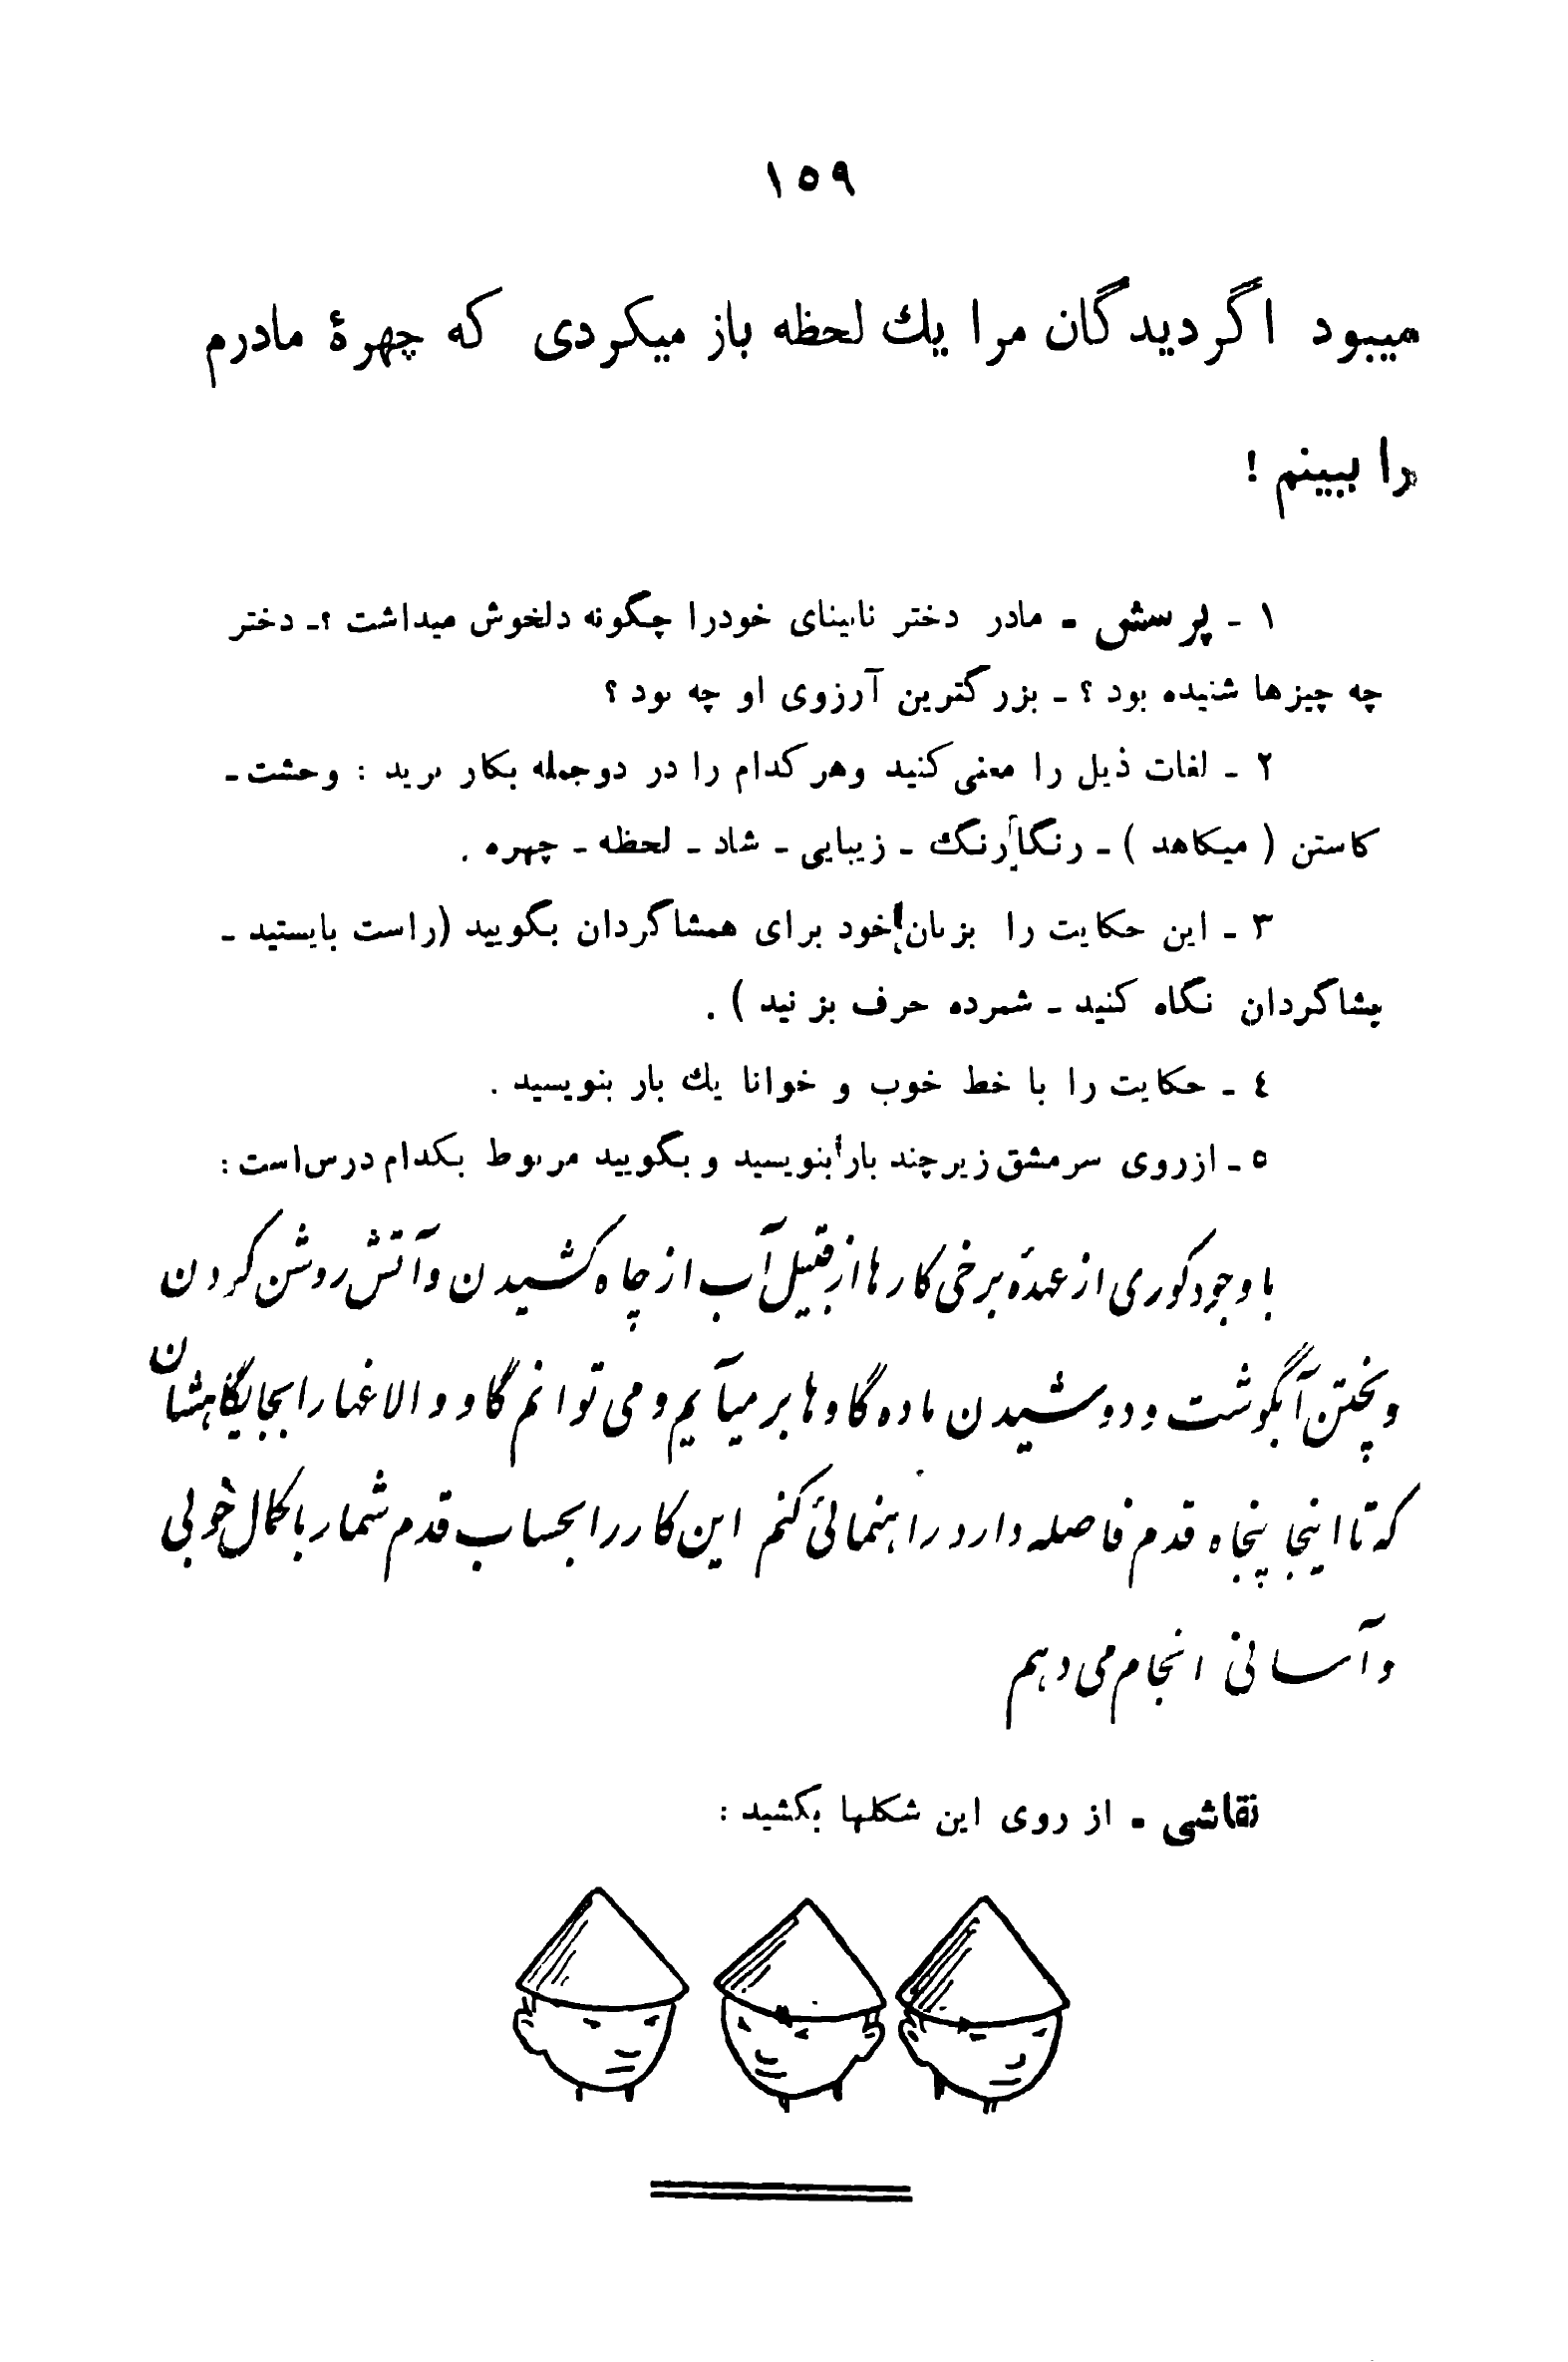 ١٥٩
میبود اگر دیدگان مرا یك لحظه باز میکردی که چهرهٔ مادرم
را ببینم !
١ - پرسش - مادر دختر نابینای خودرا چگونه دلخوش میداشت ؟- دختر
چه چیزها شنیده بود ؟ - بزرگترین آرزوی او چه بود ؟
٢ - لغات ذیل را معنی کنید وهر کدام را در دوجمله بکار برید : وحشت -
کاستن ( میکاهد ) - رنگارنگ - زیبایی - شاد - لحظه - چهره .
٣ - این حکایت را بزبان خود برای همشاگردان بگویید (راست بایستید -
بشاگردان نگاه کنید - شمرده حرف بزنید ) .
٤ - حکایت را با خط خوب و خوانا یك بار بنویسید .
٥ - ازروی سرمشق زیر چند بار بنویسید و بگویید مربوط بکدام درس است :
با وجود کوری از عهدهٔ برخی کارها از قبیل آب از چاه کشیدن و آتش روشن کردن
و پختن آبگوشت و دوشیدن ماده گاوها برمیآیم و می توانم گاو و الاغها را بجایگاهشان
که تا اینجا پنجاه قدم فاصله دارد راهنمائی کنم این کار را بحساب قدم شمار با کمال خوبی
و آسانی انجام می دهم
نقاشی - از روی این شکلها بکشید :